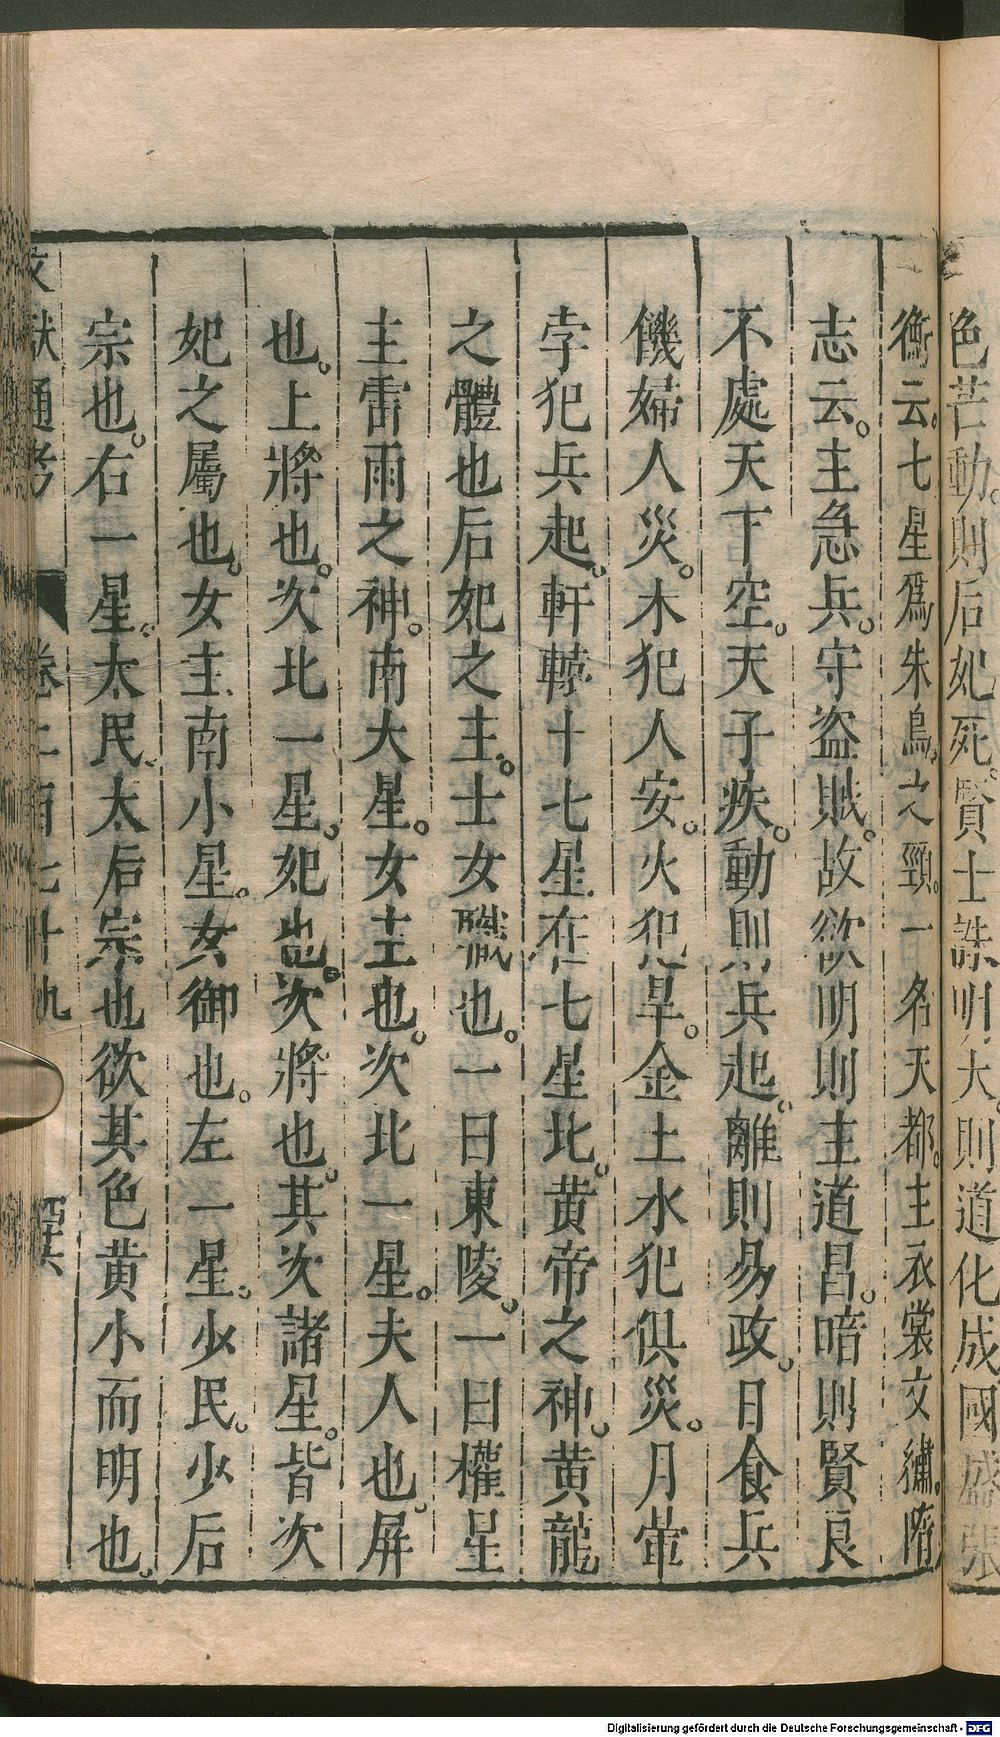 色芒動則后妃死賢士誅明大則道化成國盛張
衡云七星爲朱鳥之頸一名天都主衣裳文繡隋
志云主急兵守盜賊故欲明明則主道昌暗則賢良
不處天下空天子疾動則兵起離則易政日食兵
饑婦人災木犯人安火犯旱金土水犯俱災月暈
孛犯兵起軒轅十七星在七星北黄帝之神黄龍
之體也后妃之主士女職也一曰東陵一曰權星
主雷雨之神南大星女主也次北一星夫人也屏
也上將也次北一星妃也次將也其次諸星皆次
妃之屬也女主南小星女御也左一星少民少后
宗也右一星太民太后宗也欲其色黄小而明也
文獻通考 卷二百七十九
Digitalisierung gefördert durch die Deutsche Forschungsgemeinschaft - DFG